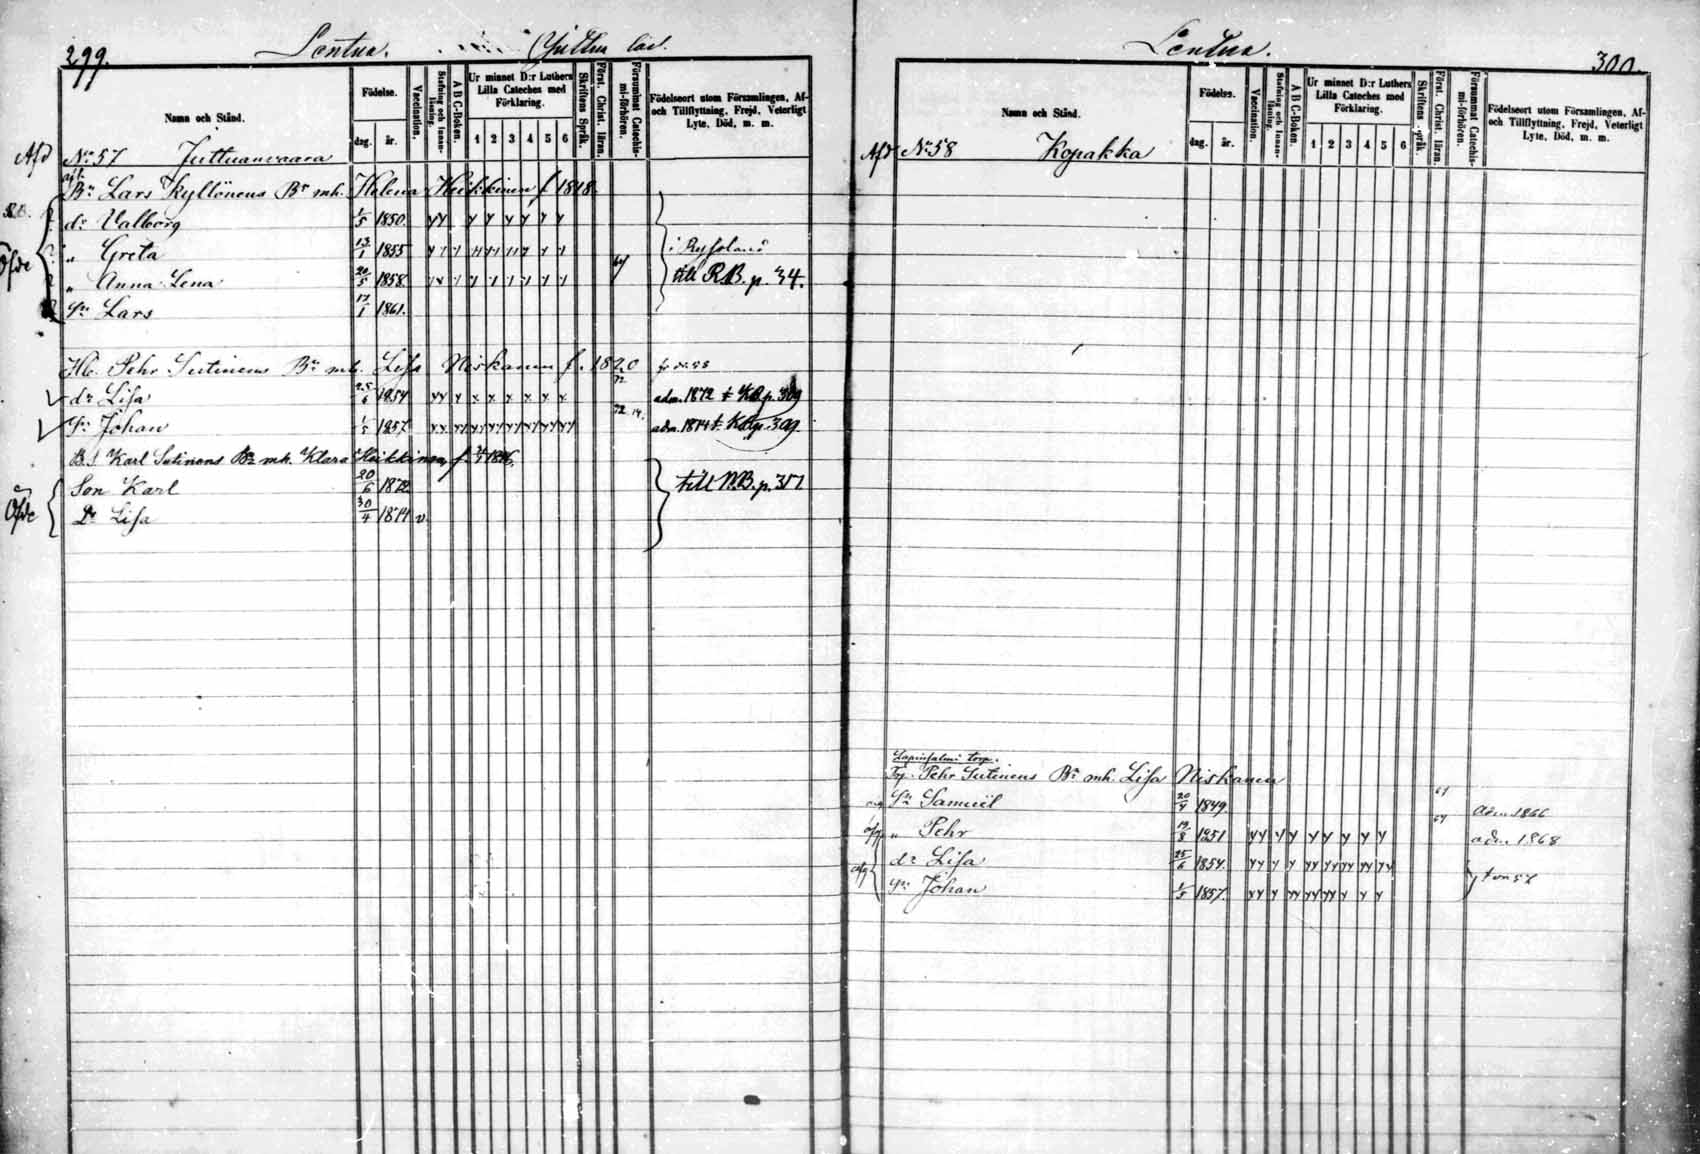 299. Lentua.
Namn och Stånd. Födelse. dag. år. Vaccination. Stafning och Innanläsning. A B C-Boken. Ur minnet D:r Luthers Lilla Cateches med Förklaring. 1 2 3 4 5 6 Skriftens Språk. Först. Christ. läran. Försummat Catechismi-förhören. Födelseort utom Församlingen, Af- och Tillflyttning, Frejd, Veterligt Lyte, Död, m. m.
Afd No 57 Juttuanvaara
Bn Lars Kyllönens Br mh. Helena Heikkinen f 1818.
dr Valborg 1/5 1850.
" Greta 13/1 1855 i Ryssland
" Anna Lena 20/5 1858. 64 till R.B. p. 34.
Sn Lars 17/1 1861.
Pehr Sutinens Br mh. Lisa Niskanen f. 1820
dr Lisa 25/6 1854 72 adm. 1872 t. KB p. 309
Sn Johan 1/5 1857 72 adm. 1874 t. KB p. 309
Karl Sutinens Br mh. Klara Heikkinen f. 1846.
Son Karl 20/6 1872 till N.B. p. 317
Dr Lisa 30/4 1874 v.
Lentua. 300.
Namn och Stånd. Födelse. dag. år. Vaccination. Stafning och Innanläsning. A B C-Boken. Ur minnet D:r Luthers Lilla Cateches med Förklaring. 1 2 3 4 5 6 Skriftens Språk. Först. Christ. läran. Försummat Catechismi-förhören. Födelseort utom Församlingen, Af- och Tillflyttning, Frejd, Veterligt Lyte, Död, m. m.
Afd No 58 Kopakka
Lapinsalmi torp.
Pehr Sutinens Br mh. Lisa Niskanen
Sn Samuël 20/4 1849. Adm 1866
" Pehr 19/8 1851 64 adm 1868
dr Lisa 25/6 1854.
Sn Johan 1/5 1857. t no 57